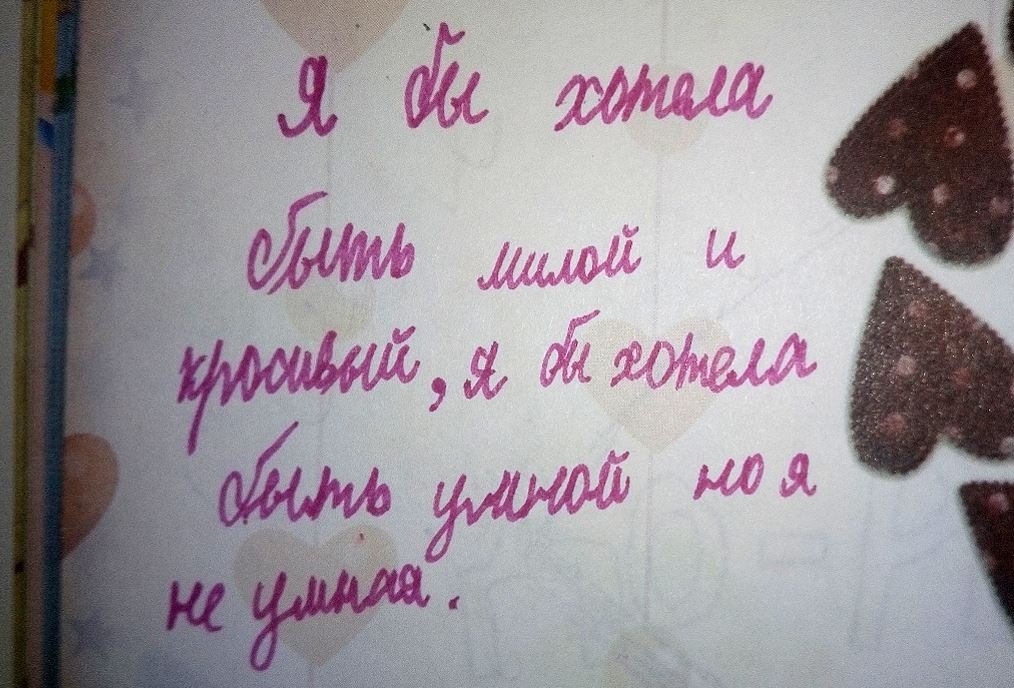 Я бы хотела
быть милой и
красивый, я бы хотела
быть умной но я
не умная.